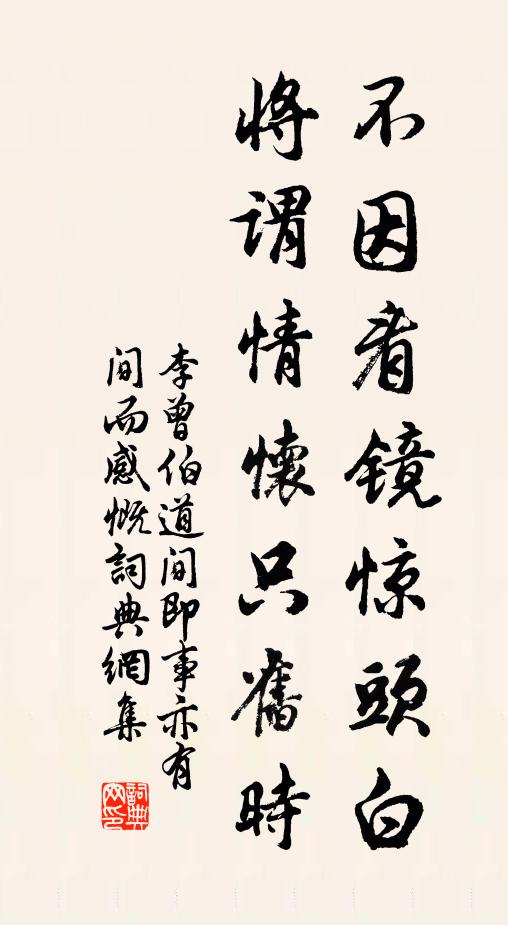 不因看镜惊頭白
将谓情懷只舊時
李曾伯道间即事亦有
间而感慨詞典網集
詞典网印